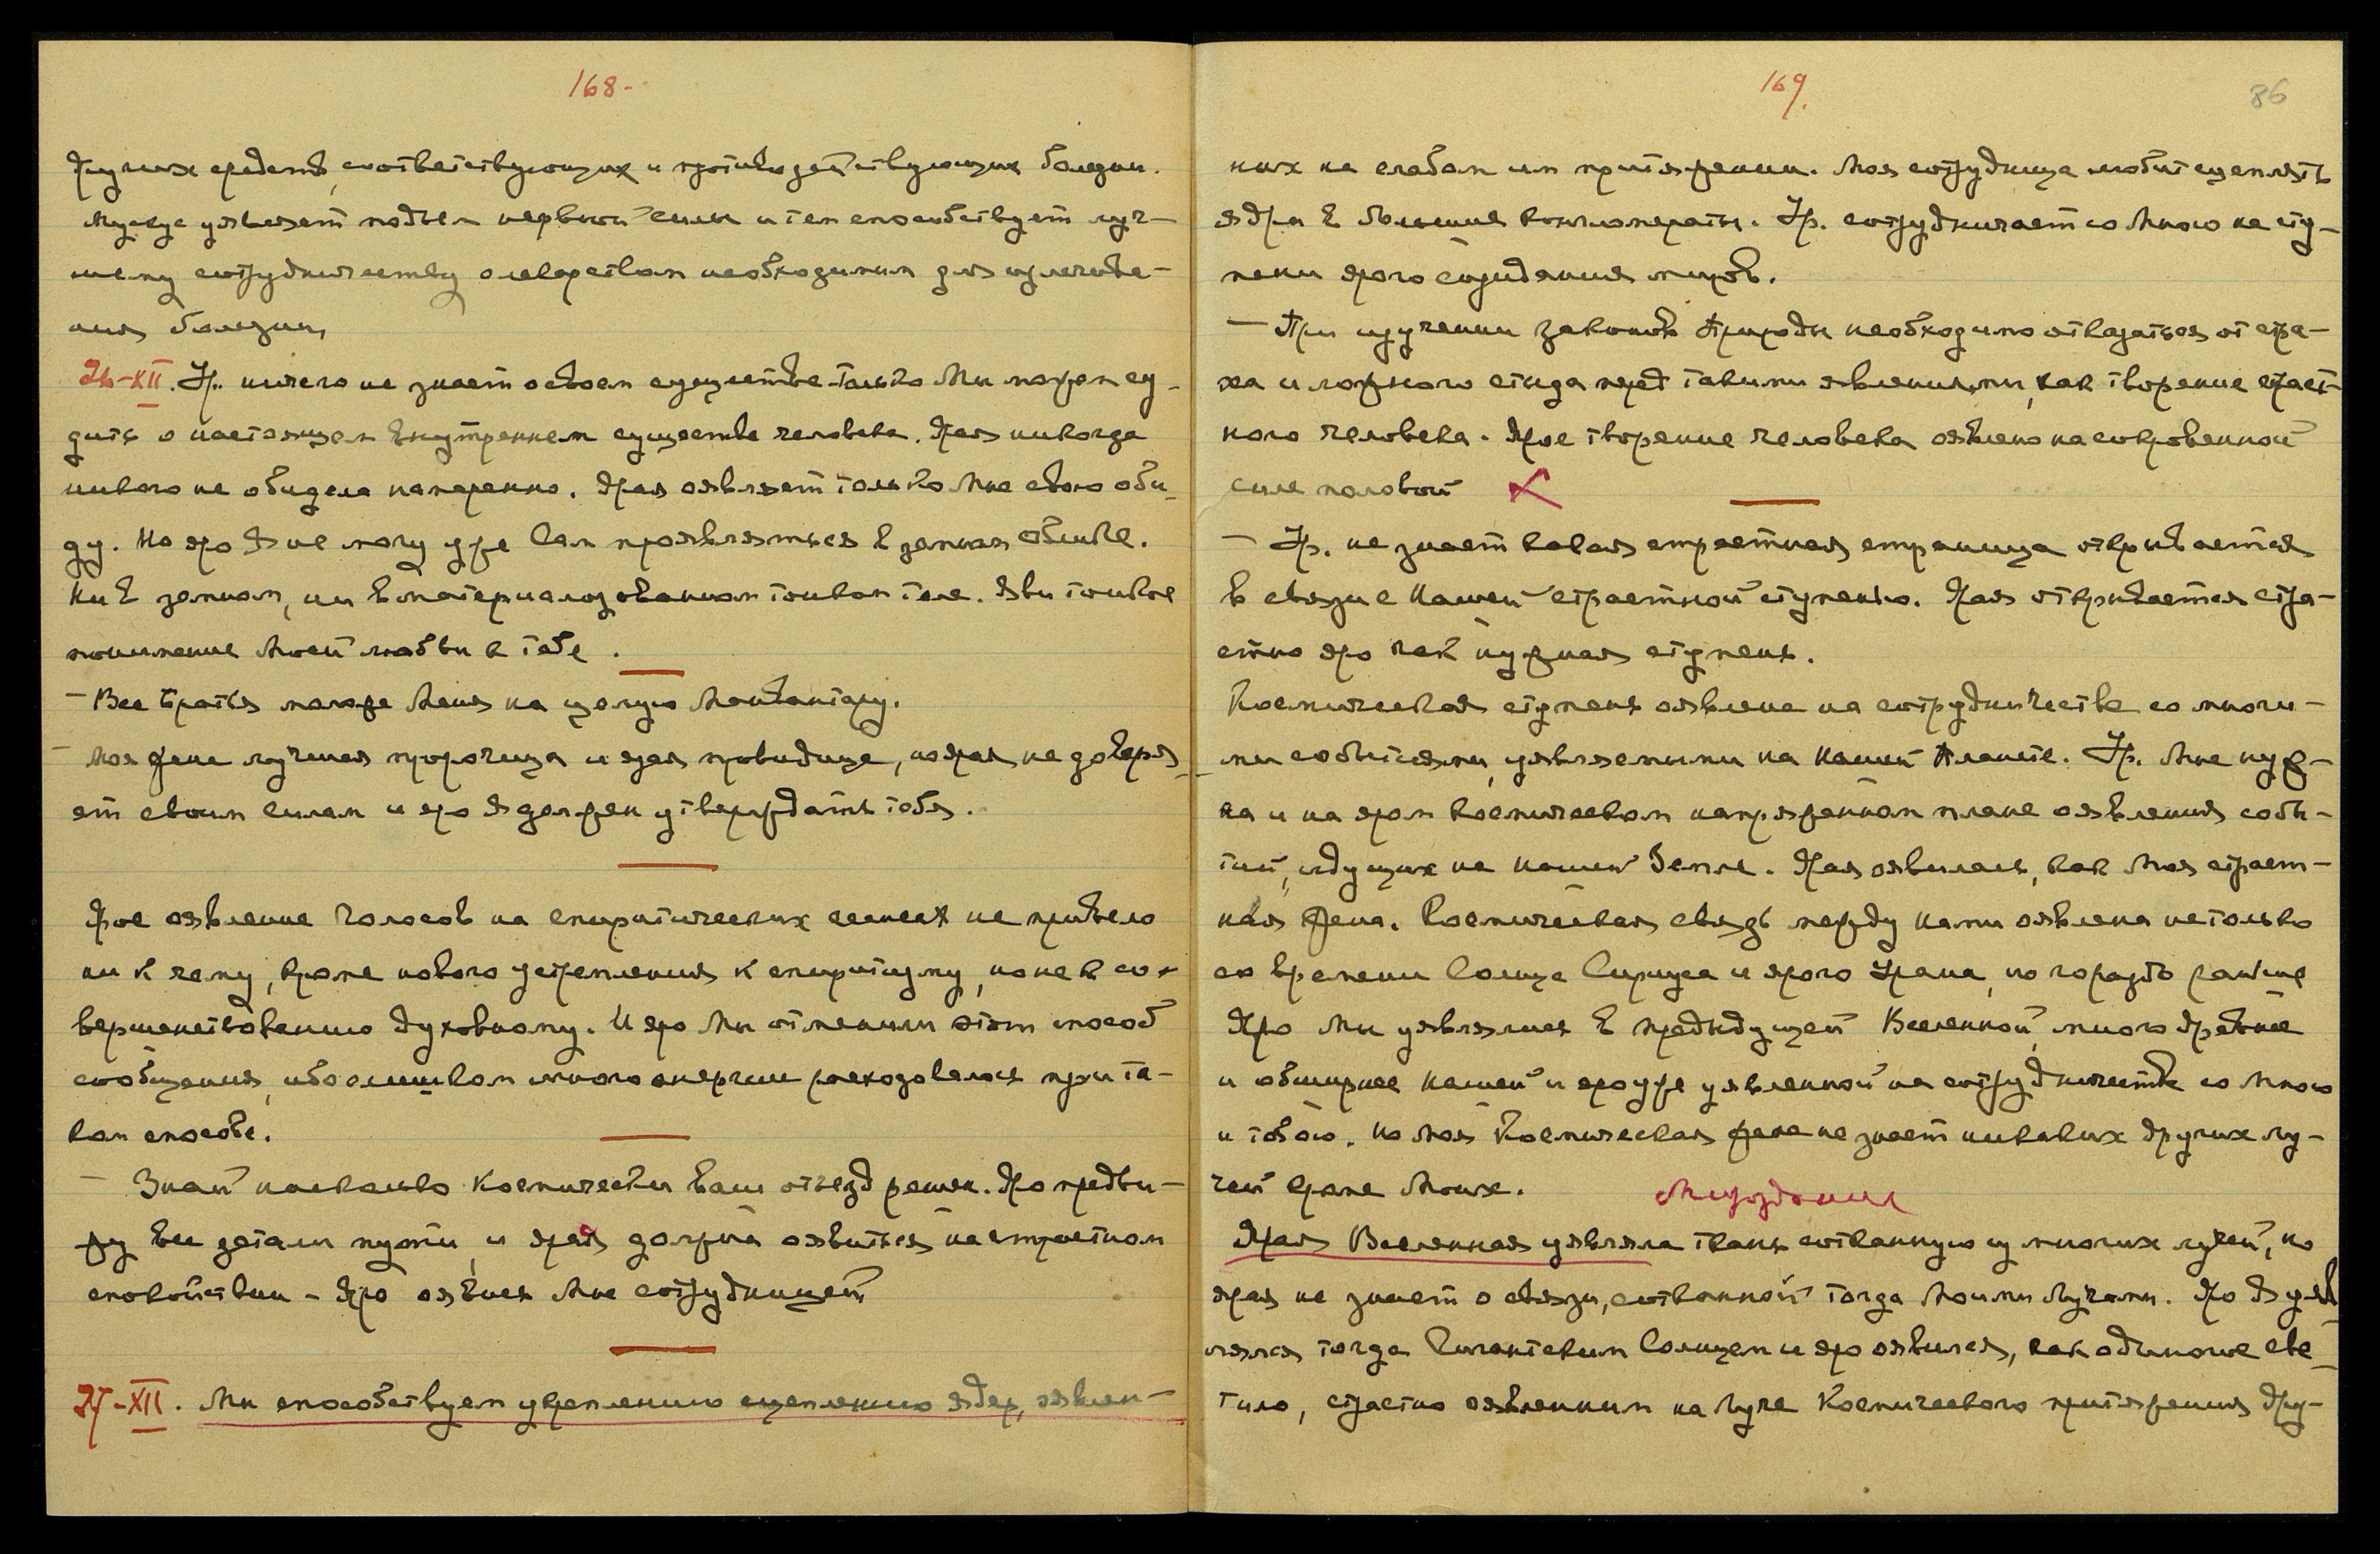 168-
других средств, соответствующих и противодействующих болезни.
Мускус уявляет подъем нервной силы и тем способствует луч-
шему сотрудничеству с лекарством необходимым для излечива-
ния болезни,
26-XII. Ур. ничего не знает о своем существе. Только Мы можем су-
дить о настоящем внутреннем существе человека. Ярая никогда
никого не обидела намеренно. Ярая оявляет только Мне свою оби-
ду. Но яро Я не могу уже Сам проявляться в земном облике.
Ни в земном, ни в материализованном тонком теле. Яви тонкое
понимание Моей любви к тебе.
- Все Братья моложе Меня на целую Манвантару.
- Моя жена лучшая пророчица и ярая провидица, но ярая не доверя-
ет своим силам и яро Я должен утверждать тебя.
Ярое оявление Голосов на спиритических сеансах не привело
ни к чему, кроме нового устремления к спиритизму, но не к со-
вершенствованию духовному. И яро Мы отменили этот способ
сообщения, ибо слишком много энергии расходовалось при та-
ком способе.
- Знай насколько Космически ваш отъезд решен. Яро предви-
жу все детали пути, и ярая должна оявиться на страстном
спокойствии - Яро оявись Мне сотрудницей
27-XII. Мы способствуем укреплению сцеплению ядер, оявлен-
169.
86
ных на слабом им притяжении. Моя сотрудница любит сцеплять
ядра в большие конгломераты. Ур. сотрудничает со Мною на сту-
пени ярого созидания миров.
- При изучении законов Природы необходимо отказаться от стра-
ха и ложного стыда перед такими явлениями, как творение страст-
ного человека. Ярое творение человека оявлено на сокровенной
силе половой
- Ур. не знает какая страстная страница открывается
в связи с Нашей страстной ступенью. Ярая открывается стра-
стно яро как нужная ступень.
Космическая ступень оявлена на сотрудничестве со многи-
ми событиями, уявляемыми на нашей Планете. Ур. Мне нуж-
на и на яром космическом напряженном плане оявления собы-
тий, идущих на нашей Земле. Ярая оявилась, как Моя страст-
ная жена. Космическая связь между нами оявлена не только
со времени Солнца Сириуса и ярого Урана, но гораздо раньше
Яро Мы уявлялись в предыдущей Вселенной, много древнее
и обширнее нашей и яро уже уявленной на сотрудничестве со Мною
и тобою. Но Моя Космическая жена не знает никаких других лу-
чей кроме Моих.
Мироздание
Ярая Вселенная уявляла ткань сотканную из многих лучей, но
ярая не знает о связи, сотканной тогда Моими Лучами. Яро Я уяв-
лялся тогда Гигантским Солнцем и яро оявился, как одинокое све-
тило, страстно оявленным на Луче Космического притяжения дру-